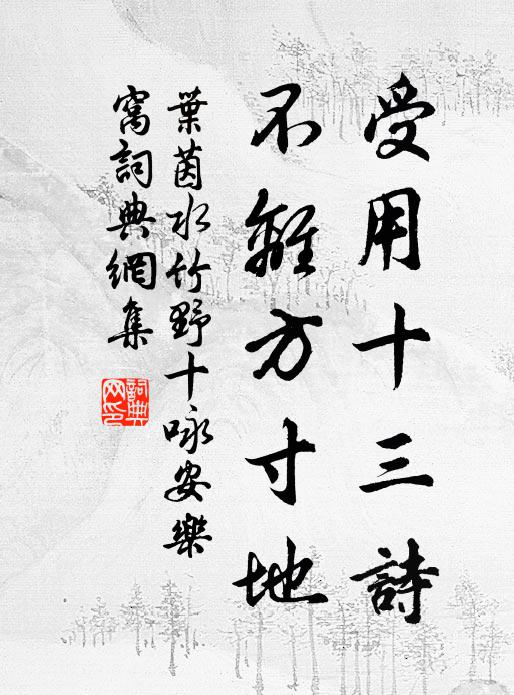 受用十三詩
不離方寸地
葉茵水竹野十咏安樂
窩詞典網集
詞典网印